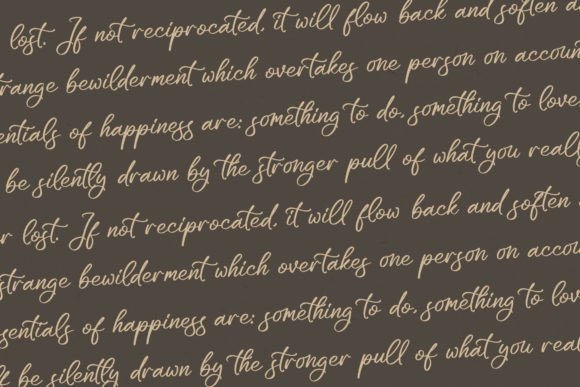 lost. If not reciprocated, it will flow back and soften
strange bewilderment which overtakes one person on
essentials of happiness are: something to do, something to love
be silently drawn by the stronger pull of what you
lost. If not reciprocated, it will flow back and soften
strange bewilderment which overtakes one person on
essentials of happiness are: something to do, something to
be silently drawn by the stronger pull of what you